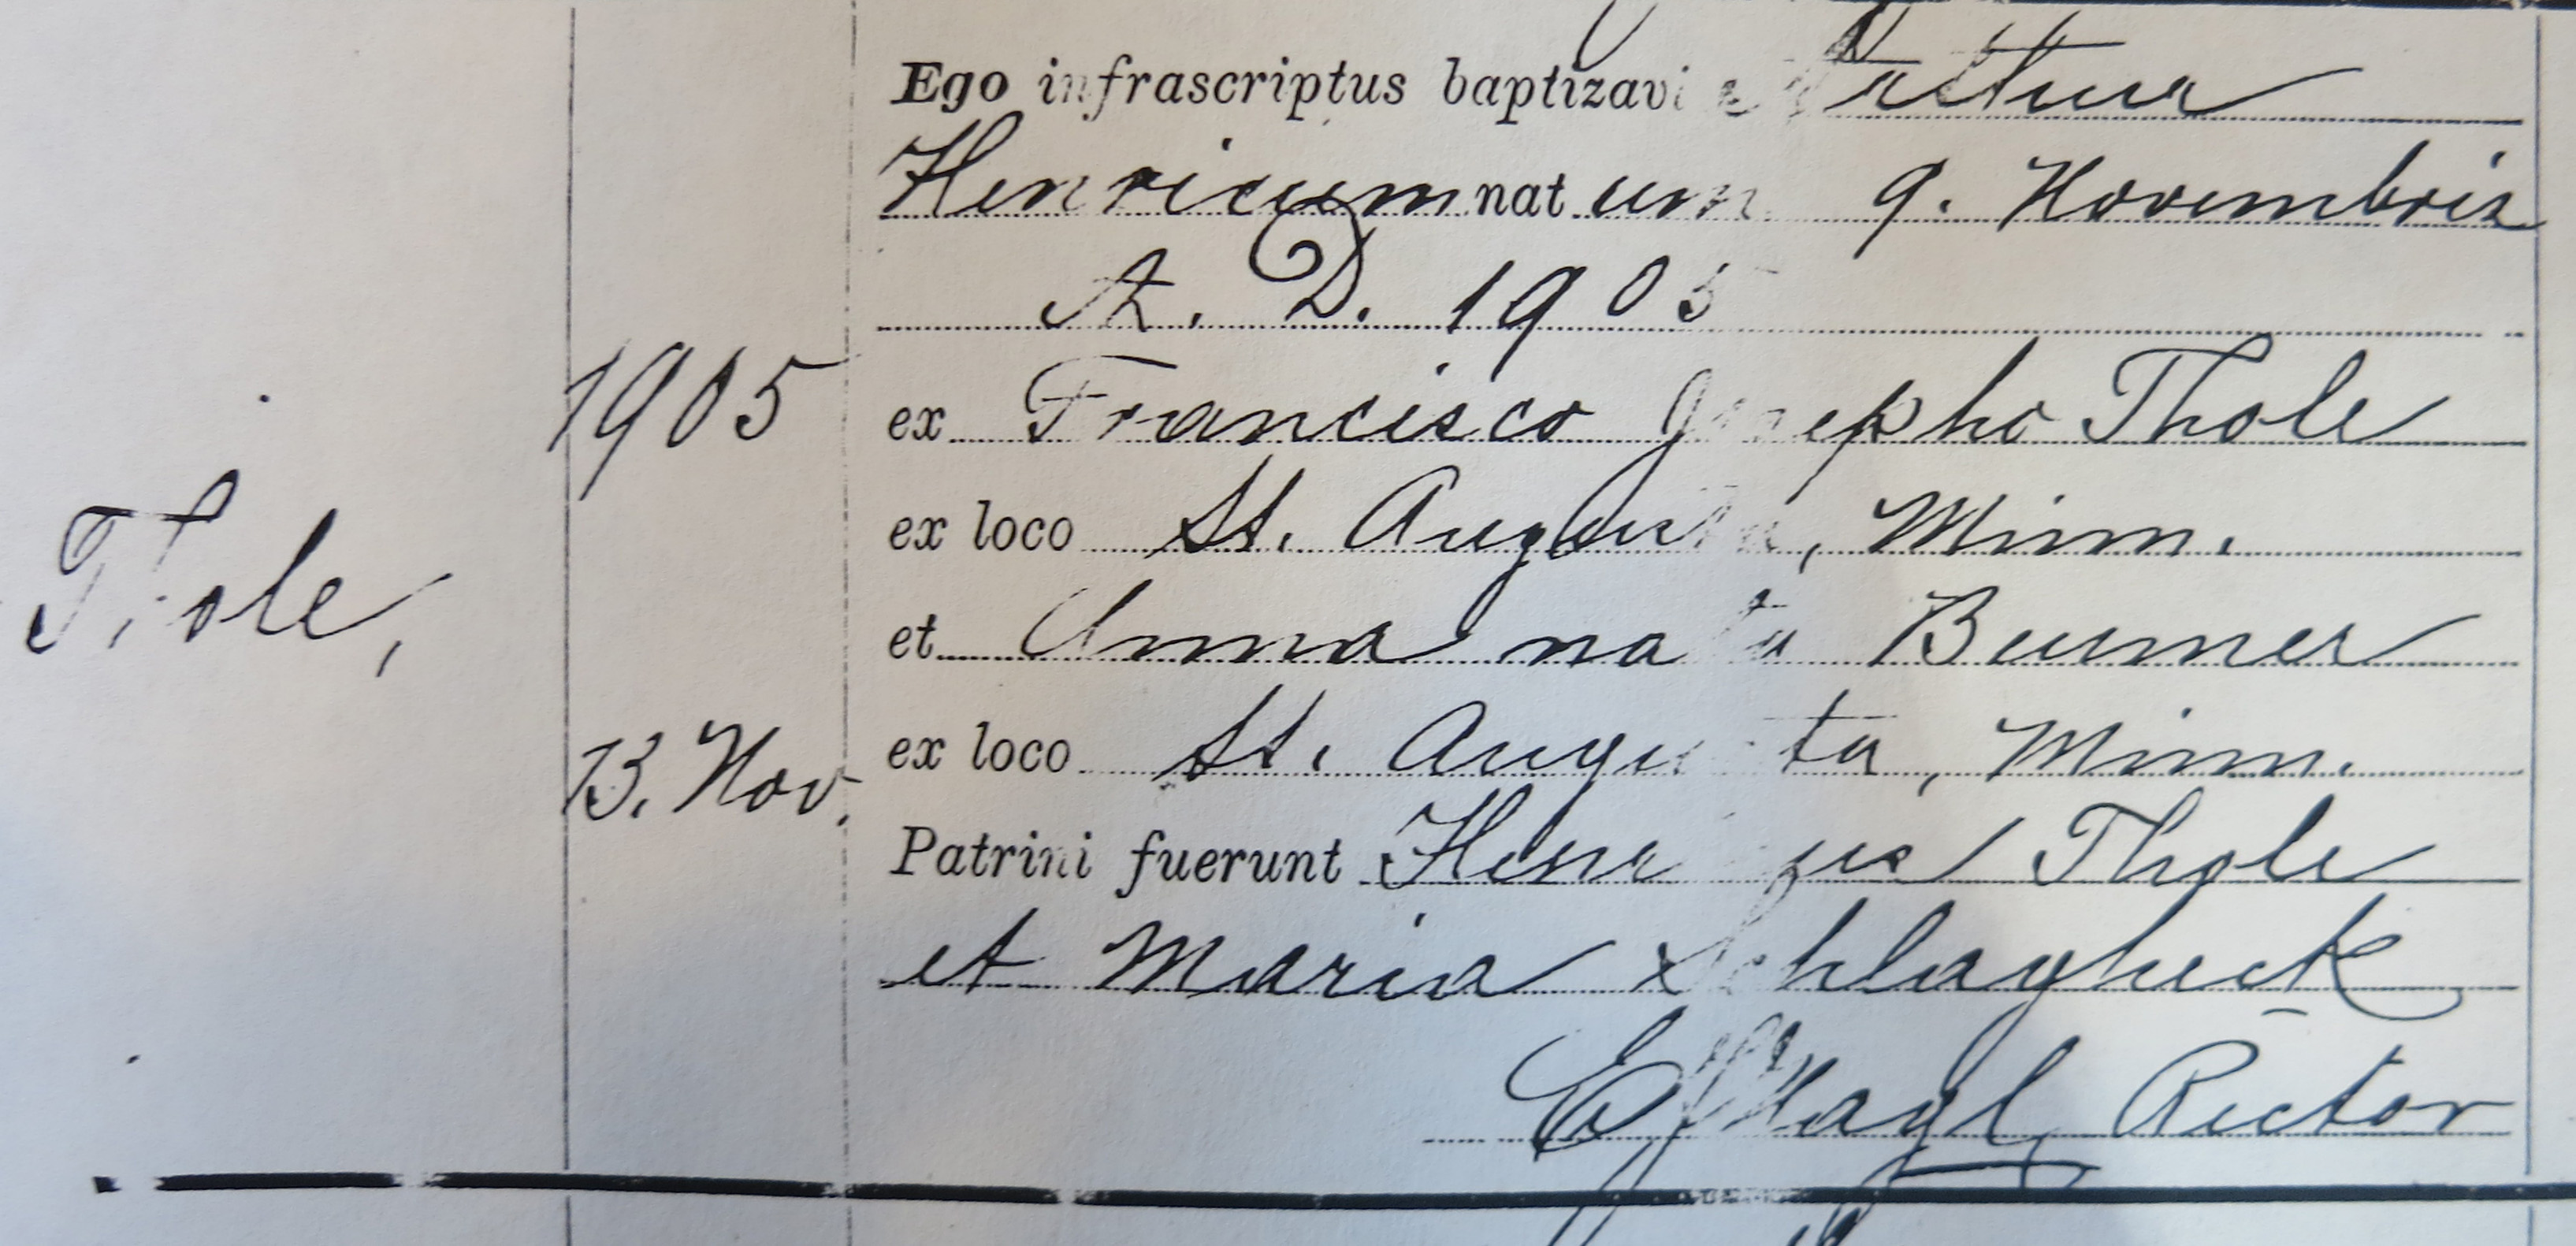 Ego infrascriptus baptizavi
Henricum natum 9. Novembris
A. D. 1905
1905
ex Francisco Josepho Thole
ex loco St. Augusta, Minn.
Thole,
et Anna nata Beumer
13. Nov.
ex loco St. Augusta, Minn.
Patrini fuerunt Henricus Thole
et Maria Schlagheck
Rector